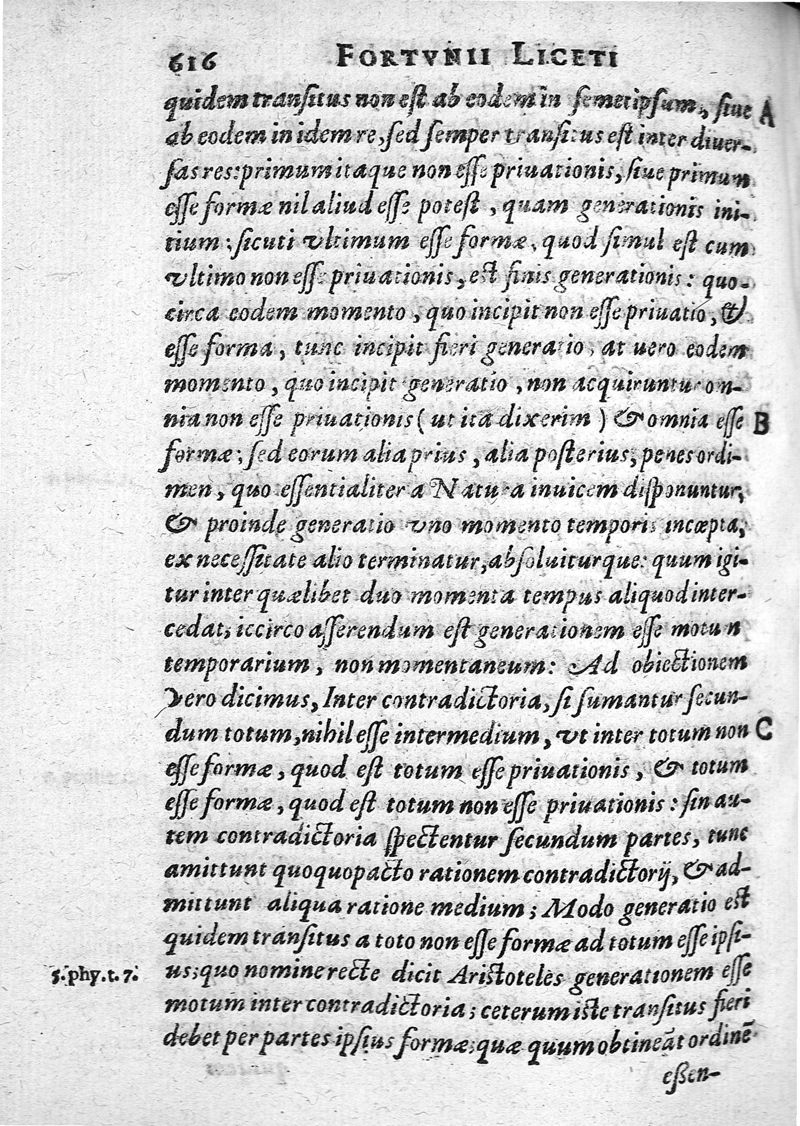 616 FORTVNII LICETI
quidem transitus non est ab eodem in semetipsum, siue A
ab eodem in idem re, sed semper transitus est inter diuer-
sas res: primum itaque non esse priuationis, siue primum
esse formæ nil aliud esse potest, quam generationis ini-
tium; sicuti vltimum esse formæ, quod simul est cum
vltimo non esse priuationis, est finis generationis: quo-
circa eodem momento, quo incipit non esse priuatio, &
esse forma, tunc incipit fieri generatio, at uero eodem
momento, quo incipit generatio, non acquiruntur om-
nia non esse priuationis (ut ita dixerim) & omnia esse B
formæ; sed eorum alia prius, alia posterius, penes ordi-
men, quo essentialiter a Natura inuicem disponuntur,
& proinde generatio vno momento temporis incœpta,
ex necessitate alio terminatur, absoluiturque: quum igi-
tur inter quælibet duo momenta tempus aliquod inter-
cedat, iccirco asserendum est generationem esse motun
temporarium, non momentaneum: Ad obiectionem
vero dicimus, Inter contradictoria, si sumantur secun-
dum totum, nihil esse intermedium, vt inter totum non C
esse formæ, quod est totum esse priuationis, & totum
esse formæ, quod est totum non esse priuationis: sin au-
tem contradictoria spectentur secundum partes, tunc
amittunt quoquopacto rationem contradictorij, & ad-
mittunt aliqua ratione medium; Modo generatio est
quidem transitus a toto non esse formæ ad totum esse ipsi-
5. phy. t. 7. us; quo nomine recte dicit Aristoteles generationem esse
motum inter contradictoria; ceterum iste transitus fieri
debet per partes ipsius formæ; quæ quum obtineāt ordinē
essen-